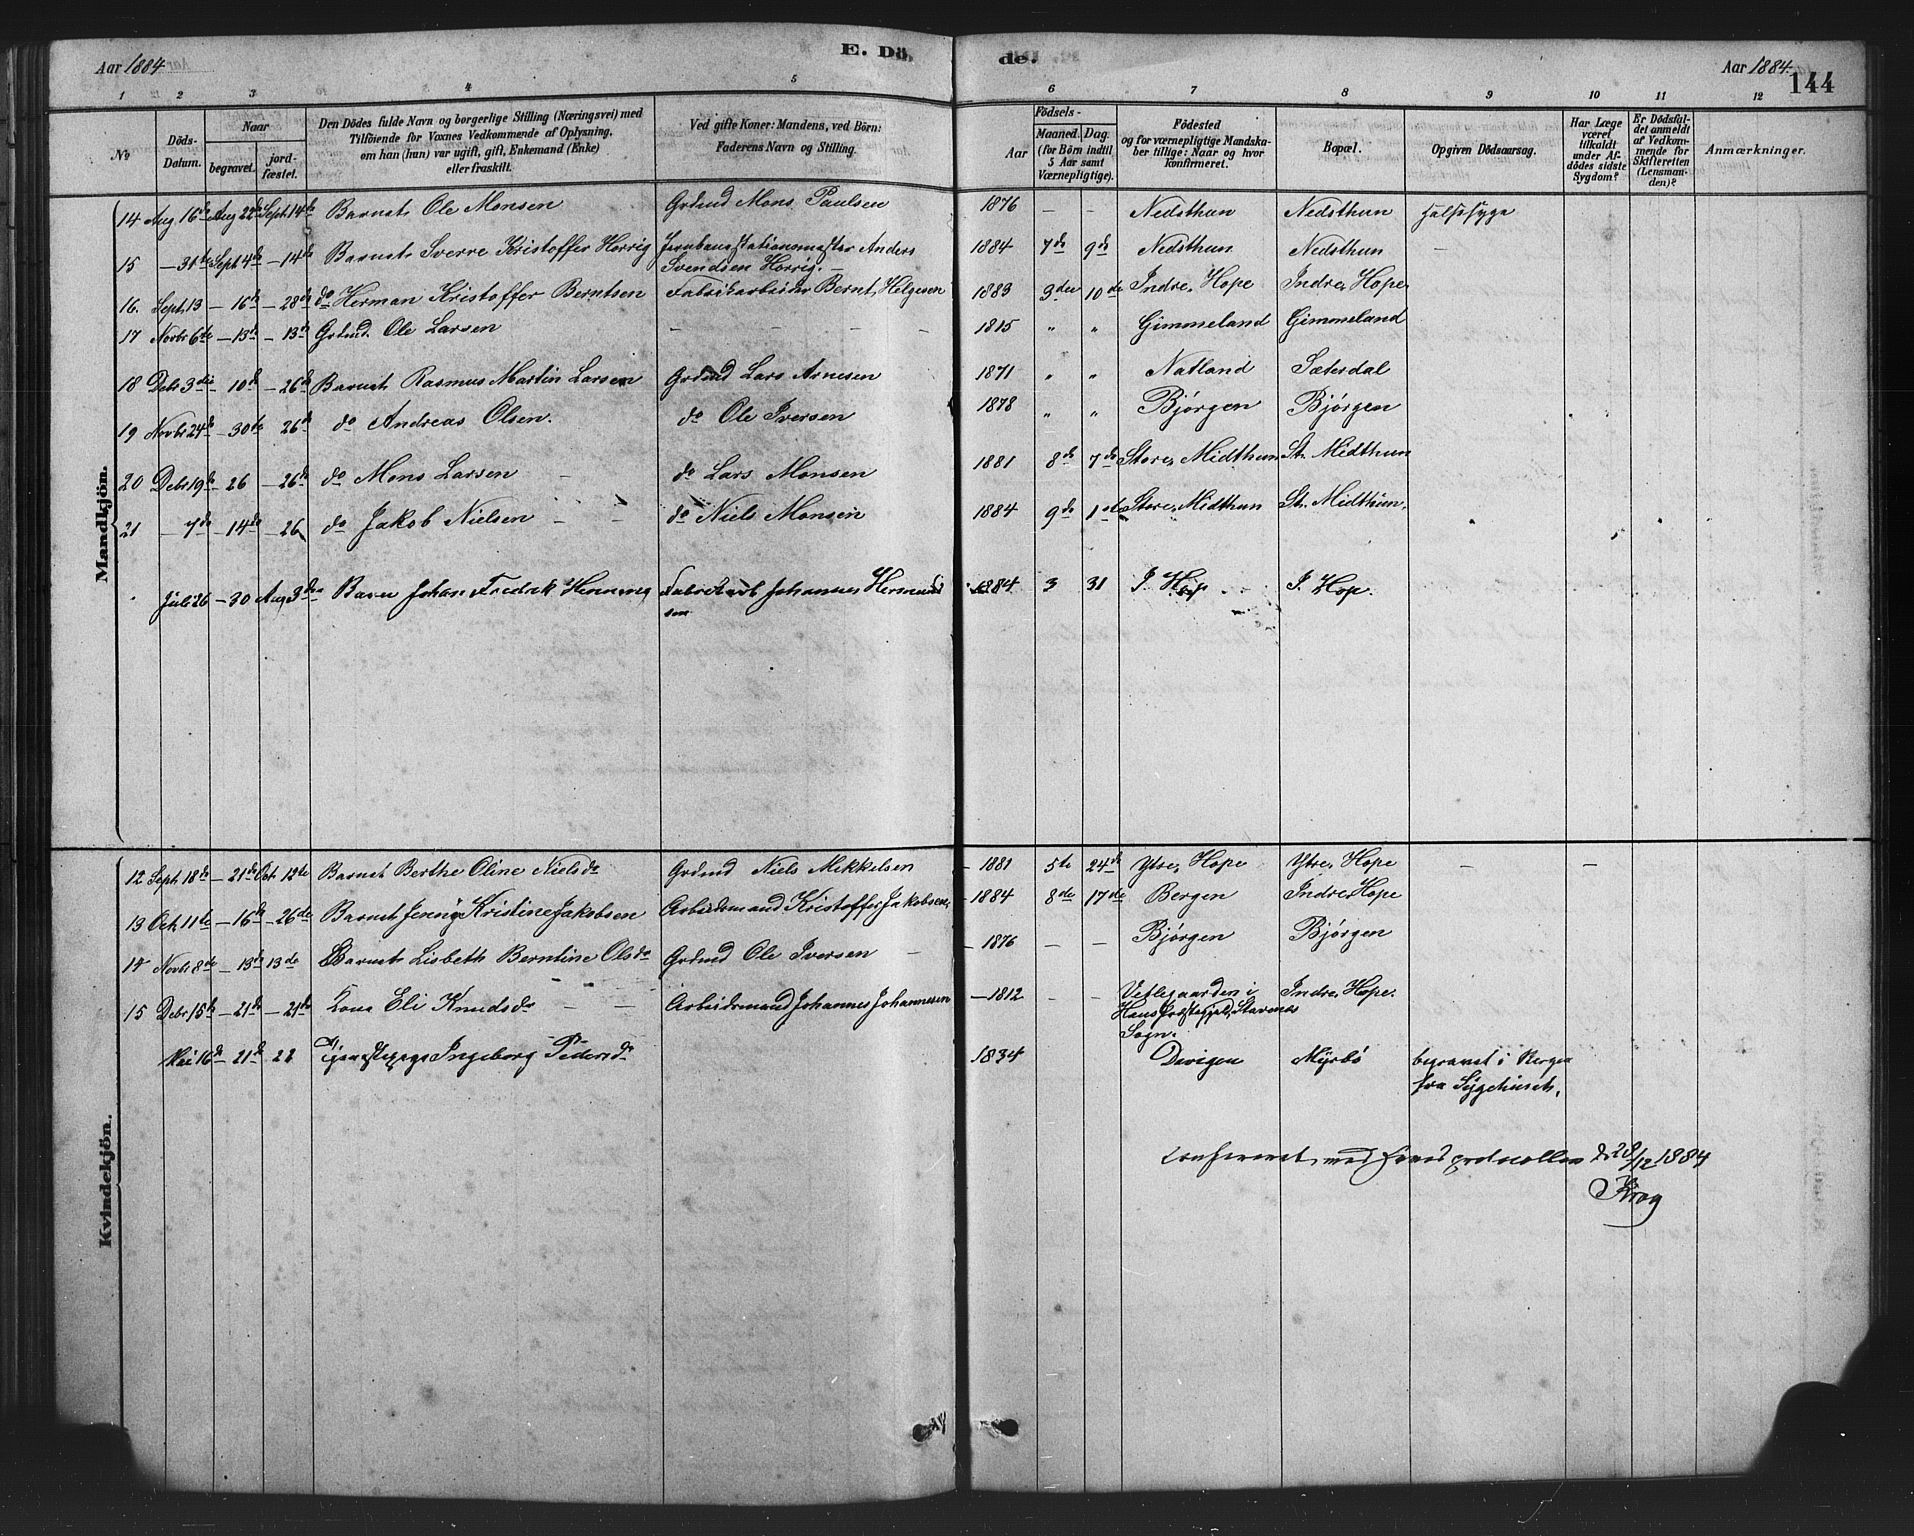 Aar 1884. E. Dö- de. Aar 1884. 144
1 2 3 4 5 6 7 8 9 10 11 12
No
Döds-Datum.
Naar
begravet.
jord-fæstet.
Den Dödes fulde Navn og borgerlige Stilling (Næringsvei) med
Tilföiende for Voxnes Vedkommende af Oplysning,
om han (hun) var ugift, gift, Enkemand (Enke)
eller fraskilt.
Ved gifte Koner: Mandens, ved Börn:
Faderens Navn og Stilling.
Födsels-
Aar
Maaned. Dag.
(for Börn indtil
5 Aar samt
Værnepligtige).
Födested
og for værnepligtige Mandska-
ber tillige: Naar og hvor
konfirmeret.
Bopæl.
Opgiven Dödsaarsag.
Har Læge
været
tilkaldt
under Af-
dödes sidste
Sygdom?
Er Dödsfal-
det anmeldt
af Vedkom-
mende for
Skifteretten
(Lensman-
den)?
Anmærkninger.
Mandkjön.
14 Aug 16de Aug 22de Sept 14de Barnet Ole Monsen Grdmd Mons Paulsen 1876 – – Nedsthun Nedsthun Halssyge
15 – 31te Sept 4de – 14de Barnet Sverre Kristoffer Herrig Jernbanestationsmester Anders 1884 7de 9de Nedsthun Nedsthun –
Svendsen Herrig. –
16. Sept. 13 – 16de – 28de do Herman Kristoffer Berntsen Fabrikarbeider Bernt Helgesen 1883 3die 10de Indre Hope Indre Hope
17 Novbr 6te – 13de – 13de Grdmd. Ole Larsen – – – – 1815 " " Gimmeland Gimmeland
18 Debr 3die – 10de – 26de Barnet Rasmus Martin Larsen Grdmd Lars Arnesen 1871 " " Natland Sæterdal
19 Novbr 24de – 30te 26de do Andreas Olsen. do Ole Iversen 1878 " " Bjørgen Bjørgen
20 Debr 19de – 26 – 26de do Mons Larsen – do Lars Monsen 1881 8de 7de Store Midthun St. Midthun
21 – 7de – 14de – 26 do Jakob Nielsen – – do Niels Monsen 1884 9de 1ste Store Midthun St. Midthun.
Juli 26 – 30 Aug 3de Barn Johan Fredrik Henning Fabrikarb Johannes Hermund 1884 3 31 I. Hop I. Hop.
sen
Kvindekjön.
12 Sept 18de – 21de Oct 12te Barnet Berthe Oline Nielsdr Grdmd Niels Mikkelsen – 1881 5te 24de Ytre Hope Ytre Hope – –
13 Oct 11te – 16de – 26de Barnet Jenny Kristine Jakobsen Arbeidsmand Kristoffer Jakobsen – 1884 8de 17de Bergen Indre Hope
14 Novbr 8de – 13de 13de Barnet Lisbeth Berntine Olsdr Grdmd Ole Iversen – – 1876 – – Bjørgen Bjørgen
15 Debr 15de – 21de – 21de Kone Eli Knudsdr – – Arbeidsmand Johannes Johannesen – 1812 – – Vetlegaarden i Indre Hope.
Haus Præstegjeld, Stavenes
Sogn.
Mai 16de – 21de – 22 Tjenestepige Ingeborg Pedersdr 1834 Davigen Myrbø begravet i Bergen
fra Sygehuset.
Confereret med Hovedprotocollen d. 28/12 1884
Krog